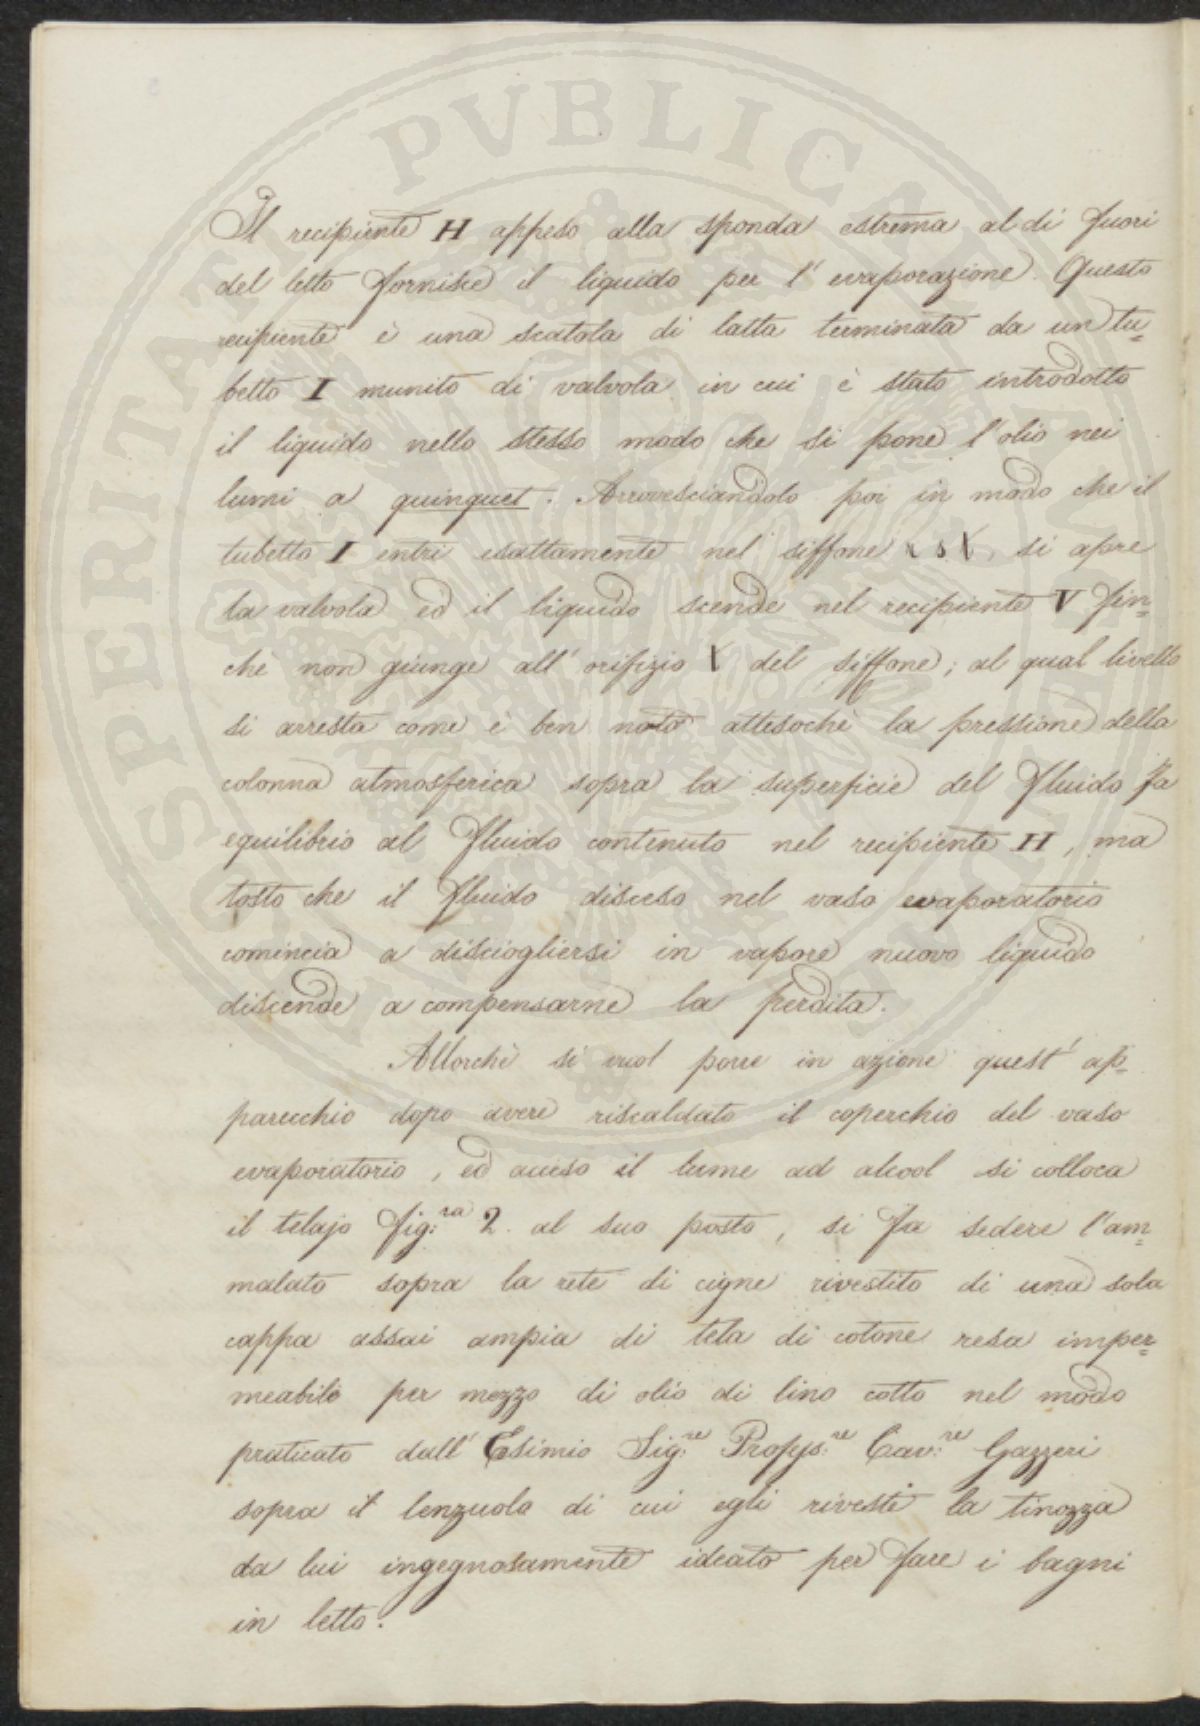 Il recipiente H appeso alla sponda estrema al di fuori
del letto fornisce il liquido per l'evaporazione. Questo
recipiente è una scatola di latta terminata da un tu=
betto I munito di valvola in cui è stato introdotto
il liquido nello stesso modo che si pone l'olio nei
lumi a quinquet. Arrovesciandolo poi in modo che il
tubetto I entri esattamente nel siffone si apre
la valvola ed il liquido scende nel recipiente V fin=
chè non giunge all'orifizio X del siffone; al qual livello
si arresta come è ben noto attesochè la pressione della
colonna atmosferica sopra la superficie del fluido fa
equilibrio al fluido contenuto nel recipiente H, ma
tosto che il fluido disceso nel vaso evaporatorio
comincia a disciogliersi in vapore nuovo liquido
discende a compensarne la perdita.
Allorchè si vuol porre in azione quest'ap=
parecchio dopo avere riscaldato il coperchio del vaso
evaporatorio, ed acceso il lume ad alcool si colloca
il telajo fig:ra 2. al suo posto, si fa sedere l'am=
malato sopra la rete di cigne rivestito di una sola
cappa assai ampia di tela di cotone resa imper=
meabile per mezzo di olio di lino cotto nel modo
praticato dall'Esimio Sig:re Profess:re Cav:re Gazzeri
sopra il lenzuolo di cui egli rivestì la tinozza
da lui ingegnosamente ideata per fare i bagni
in letto.
PVBLICA